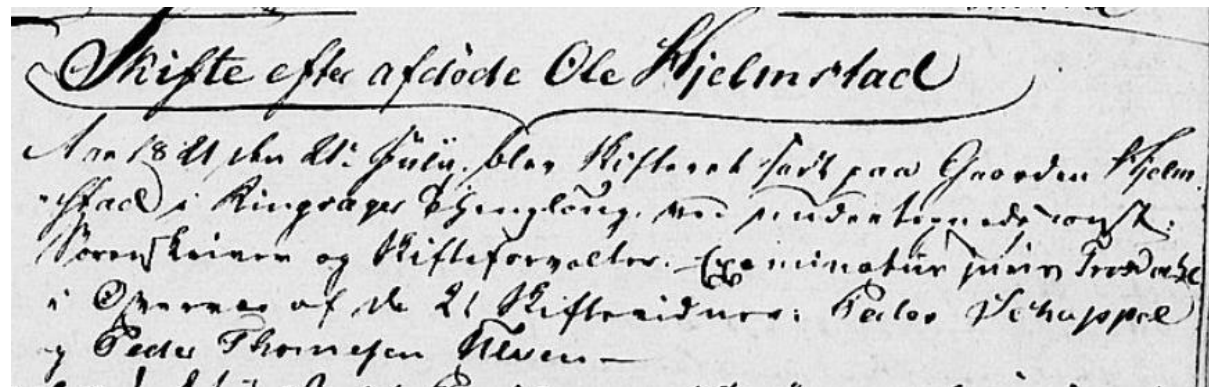 Skifte efter afdøde Ole Hjelmstad
Aar 1821 den 21 Julii blev Skifteret sadt paa Gaarden Hjelm
stad i Ringsager Thinglaug, ved undertegnede const:
Sorenskriver og Skifteforvalter, Examinatus juris
i Overvær af de 2 Skiftevidner: Peder Schappel
og Peder Thomesen Ulven